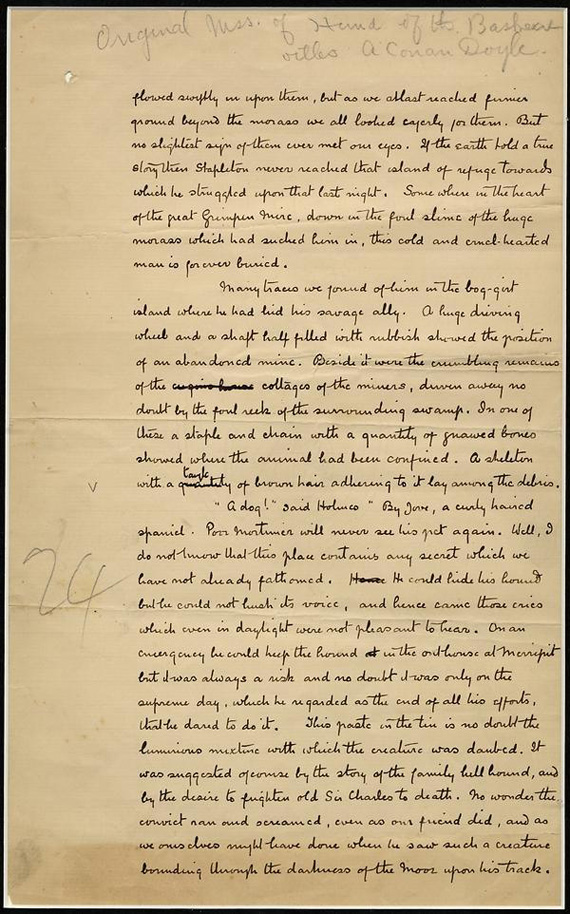 Original Mss. of Hound of the Basker
villes A Conan Doyle.
flowed swiftly in upon them, but as we at last reached firmer
ground beyond the morass we all looked eagerly for them. But
no slightest sign of them ever met our eyes. If the earth told a true
story then Stapleton never reached that island of refuge towards
which he struggled upon that last night. Some where in the heart
of the great Grimpen Mire, down in the foul slime of the huge
morass which had sucked him in, this cold and cruel-hearted
man is forever buried.
Many traces we found of him in the bog-girt
island where he had hid his savage ally. A huge driving
wheel and a shaft half filled with rubbish showed the position
of an abandoned mine. Beside it were the crumbling remains
of the cottages of the miners, driven away no
doubt by the foul reek of the surrounding swamp. In one of
these a staple and chain with a quantity of gnawed bones
showed where the animal had been confined. A skeleton
tangle
with a quantity of brown hair adhering to it lay among the debris.
V
"A dog!" said Holmes "By Jove, a curly haired
spaniel. Poor Mortimer will never see his pet again. Well, I
do not know that this place contains any secret which we
24
have not already fathomed. Hence He could hide his hound
but he could not hush its voice, and hence came those cries
which even in daylight were not pleasant to hear. On an
emergency he could keep the hound at in the outhouse at Merripit
but it was always a risk and no doubt it was only on the
supreme day, which he regarded as the end of all his efforts,
that he dared to do it. This paste in the tin is no doubt the
luminous mixture with which the creature was daubed. It
was suggested of course by the story of the family hell hound, and
by the desire to frighten old Sir Charles to death. No wonder the
convict ran and screamed, even as our friend did, and as
we ourselves might have done when he saw such a creature
bounding through the darkness of the Moor upon his track.